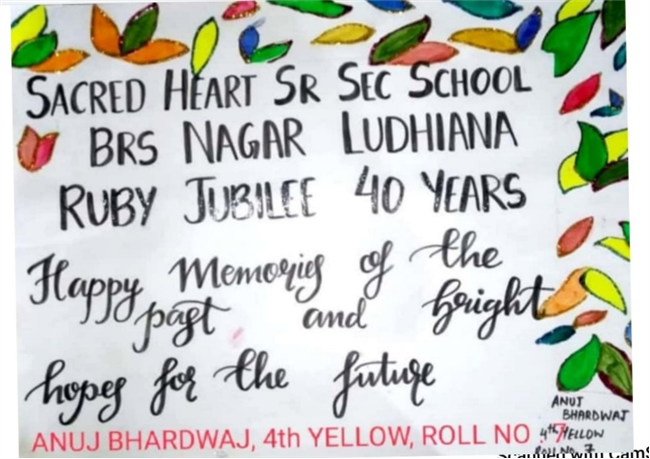 SACRED HEART SR SEC SCHOOL
BRS NAGAR LUDHIANA
RUBY JUBILEE 40 YEARS
Happy Memories of the
past and bright
hopes for the future
ANUJ BHARDWAJ, 4th YELLOW, ROLL NO . 7
ANUJ
BHARDWAJ
4th YELLOW
ROLL No. 7
Scanned with CamS